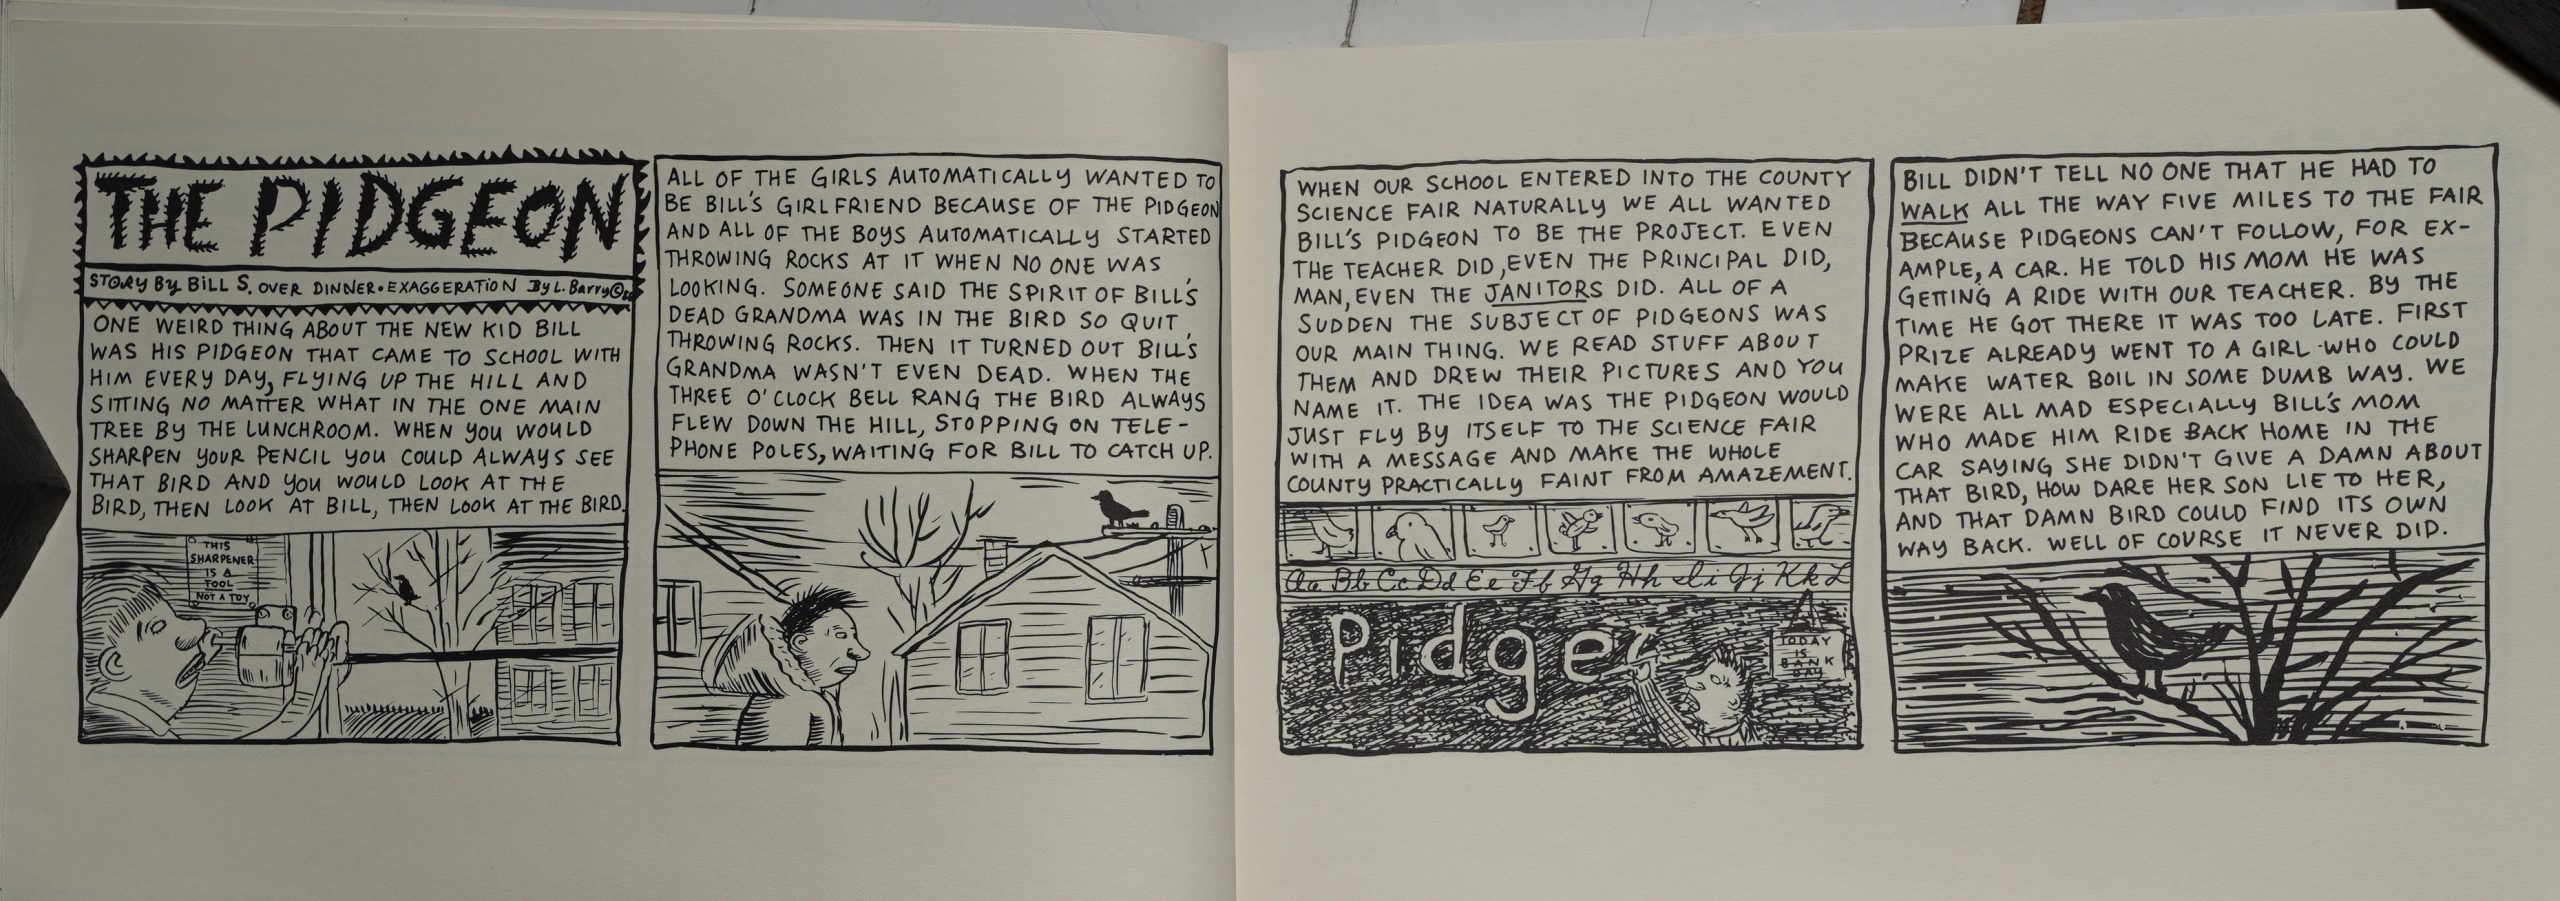 THE PIDGEON
STORY BY BILL S. OVER DINNER • EXAGGERATION BY L. BARRY ©
ONE WEIRD THING ABOUT THE NEW KID BILL
WAS HIS PIDGEON THAT CAME TO SCHOOL WITH
HIM EVERY DAY, FLYING UP THE HILL AND
SITTING NO MATTER WHAT IN THE ONE MAIN
TREE BY THE LUNCHROOM. WHEN YOU WOULD
SHARPEN YOUR PENCIL YOU COULD ALWAYS SEE
THAT BIRD AND YOU WOULD LOOK AT THE
BIRD, THEN LOOK AT BILL, THEN LOOK AT THE BIRD.
THIS
SHARPENER
IS A
TOOL
NOT A TOY
ALL OF THE GIRLS AUTOMATICALLY WANTED TO
BE BILL'S GIRLFRIEND BECAUSE OF THE PIDGEON
AND ALL OF THE BOYS AUTOMATICALLY STARTED
THROWING ROCKS AT IT WHEN NO ONE WAS
LOOKING. SOMEONE SAID THE SPIRIT OF BILL'S
DEAD GRANDMA WAS IN THE BIRD SO QUIT
THROWING ROCKS. THEN IT TURNED OUT BILL'S
GRANDMA WASN'T EVEN DEAD. WHEN THE
THREE O'CLOCK BELL RANG THE BIRD ALWAYS
FLEW DOWN THE HILL, STOPPING ON TELE-
PHONE POLES, WAITING FOR BILL TO CATCH UP.
WHEN OUR SCHOOL ENTERED INTO THE COUNTY
SCIENCE FAIR NATURALLY WE ALL WANTED
BILL'S PIDGEON TO BE THE PROJECT. EVEN
THE TEACHER DID, EVEN THE PRINCIPAL DID,
MAN, EVEN THE JANITORS DID. ALL OF A
SUDDEN THE SUBJECT OF PIDGEONS WAS
OUR MAIN THING. WE READ STUFF ABOUT
THEM AND DREW THEIR PICTURES AND YOU
NAME IT. THE IDEA WAS THE PIDGEON WOULD
JUST FLY BY ITSELF TO THE SCIENCE FAIR
WITH A MESSAGE AND MAKE THE WHOLE
COUNTY PRACTICALLY FAINT FROM AMAZEMENT.
Aa Bb Cc Dd Ee Ff Gg Hh Ii Jj Kk L
Pidge
TODAY
IS
BANK
DAY
BILL DIDN'T TELL NO ONE THAT HE HAD TO
WALK ALL THE WAY FIVE MILES TO THE FAIR
BECAUSE PIDGEONS CAN'T FOLLOW, FOR EX-
AMPLE, A CAR. HE TOLD HIS MOM HE WAS
GETTING A RIDE WITH OUR TEACHER. BY THE
TIME HE GOT THERE IT WAS TOO LATE. FIRST
PRIZE ALREADY WENT TO A GIRL WHO COULD
MAKE WATER BOIL IN SOME DUMB WAY. WE
WERE ALL MAD ESPECIALLY BILL'S MOM
WHO MADE HIM RIDE BACK HOME IN THE
CAR SAYING SHE DIDN'T GIVE A DAMN ABOUT
THAT BIRD, HOW DARE HER SON LIE TO HER,
AND THAT DAMN BIRD COULD FIND ITS OWN
WAY BACK. WELL OF COURSE IT NEVER DID.